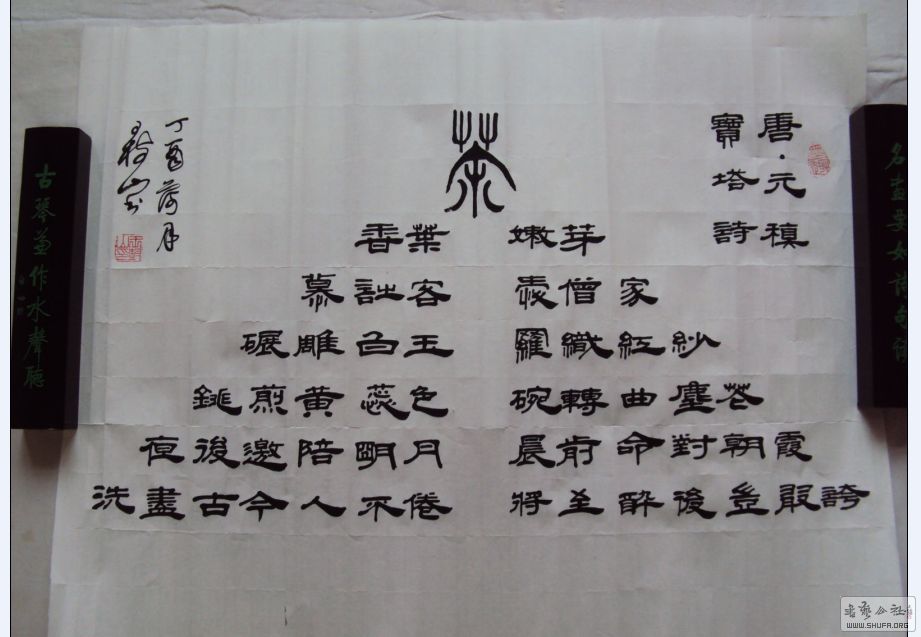 名畫要如詩句
唐·元稹
寶塔詩
茶
香葉 嫩芽
慕詩客 愛僧家
碾雕白玉 羅織紅紗
銚煎黃蕊色 碗轉曲塵花
夜後邀陪朙月 晨前命對朝霞
洗盡古今人不倦 將至醉後豈敢誇
丁酉荷月
古琴兼作水聲聽
书艺公社
WWW.SHUFA.ORG